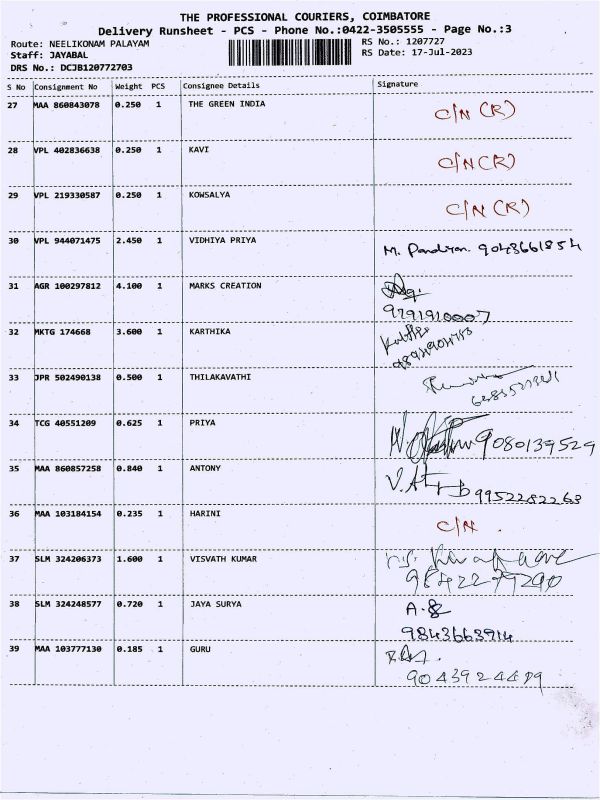 THE PROFESSIONAL COURIERS, COIMBATORE
Delivery Runsheet - PCS - Phone No.:0422-3505555 - Page No.:3
Route: NEELIKONAM PALAYAM RS No.: 1207727
Staff: JAYABAL RS Date: 17-Jul-2023
DRS No.: DCJB120772703
S No Consignment No Weight PCS Consignee Details Signature
27 MAA 860843078 0.250 1 THE GREEN INDIA C/N (R)
28 VPL 402836638 0.250 1 KAVI C/N (R)
29 VPL 219330587 0.250 1 KOWSALYA C/N (R)
30 VPL 944071475 2.450 1 VIDHIYA PRIYA M. Pandiyan. 9043661854
31 AGR 100297812 4.100 1 MARKS CREATION
9791910007
32 MKTG 174668 3.600 1 KARTHIKA
33 JPR 502490138 0.500 1 THILAKAVATHI
34 TCG 40551209 0.625 1 PRIYA 9080139529
35 MAA 860857258 0.840 1 ANTONY
9952282268
36 MAA 103184154 0.235 1 HARINI C/N.
37 SLM 324206373 1.600 1 VISVATH KUMAR
9842279290
38 SLM 324248577 0.720 1 JAYA SURYA
9843663914
39 MAA 103777130 0.185 1 GURU